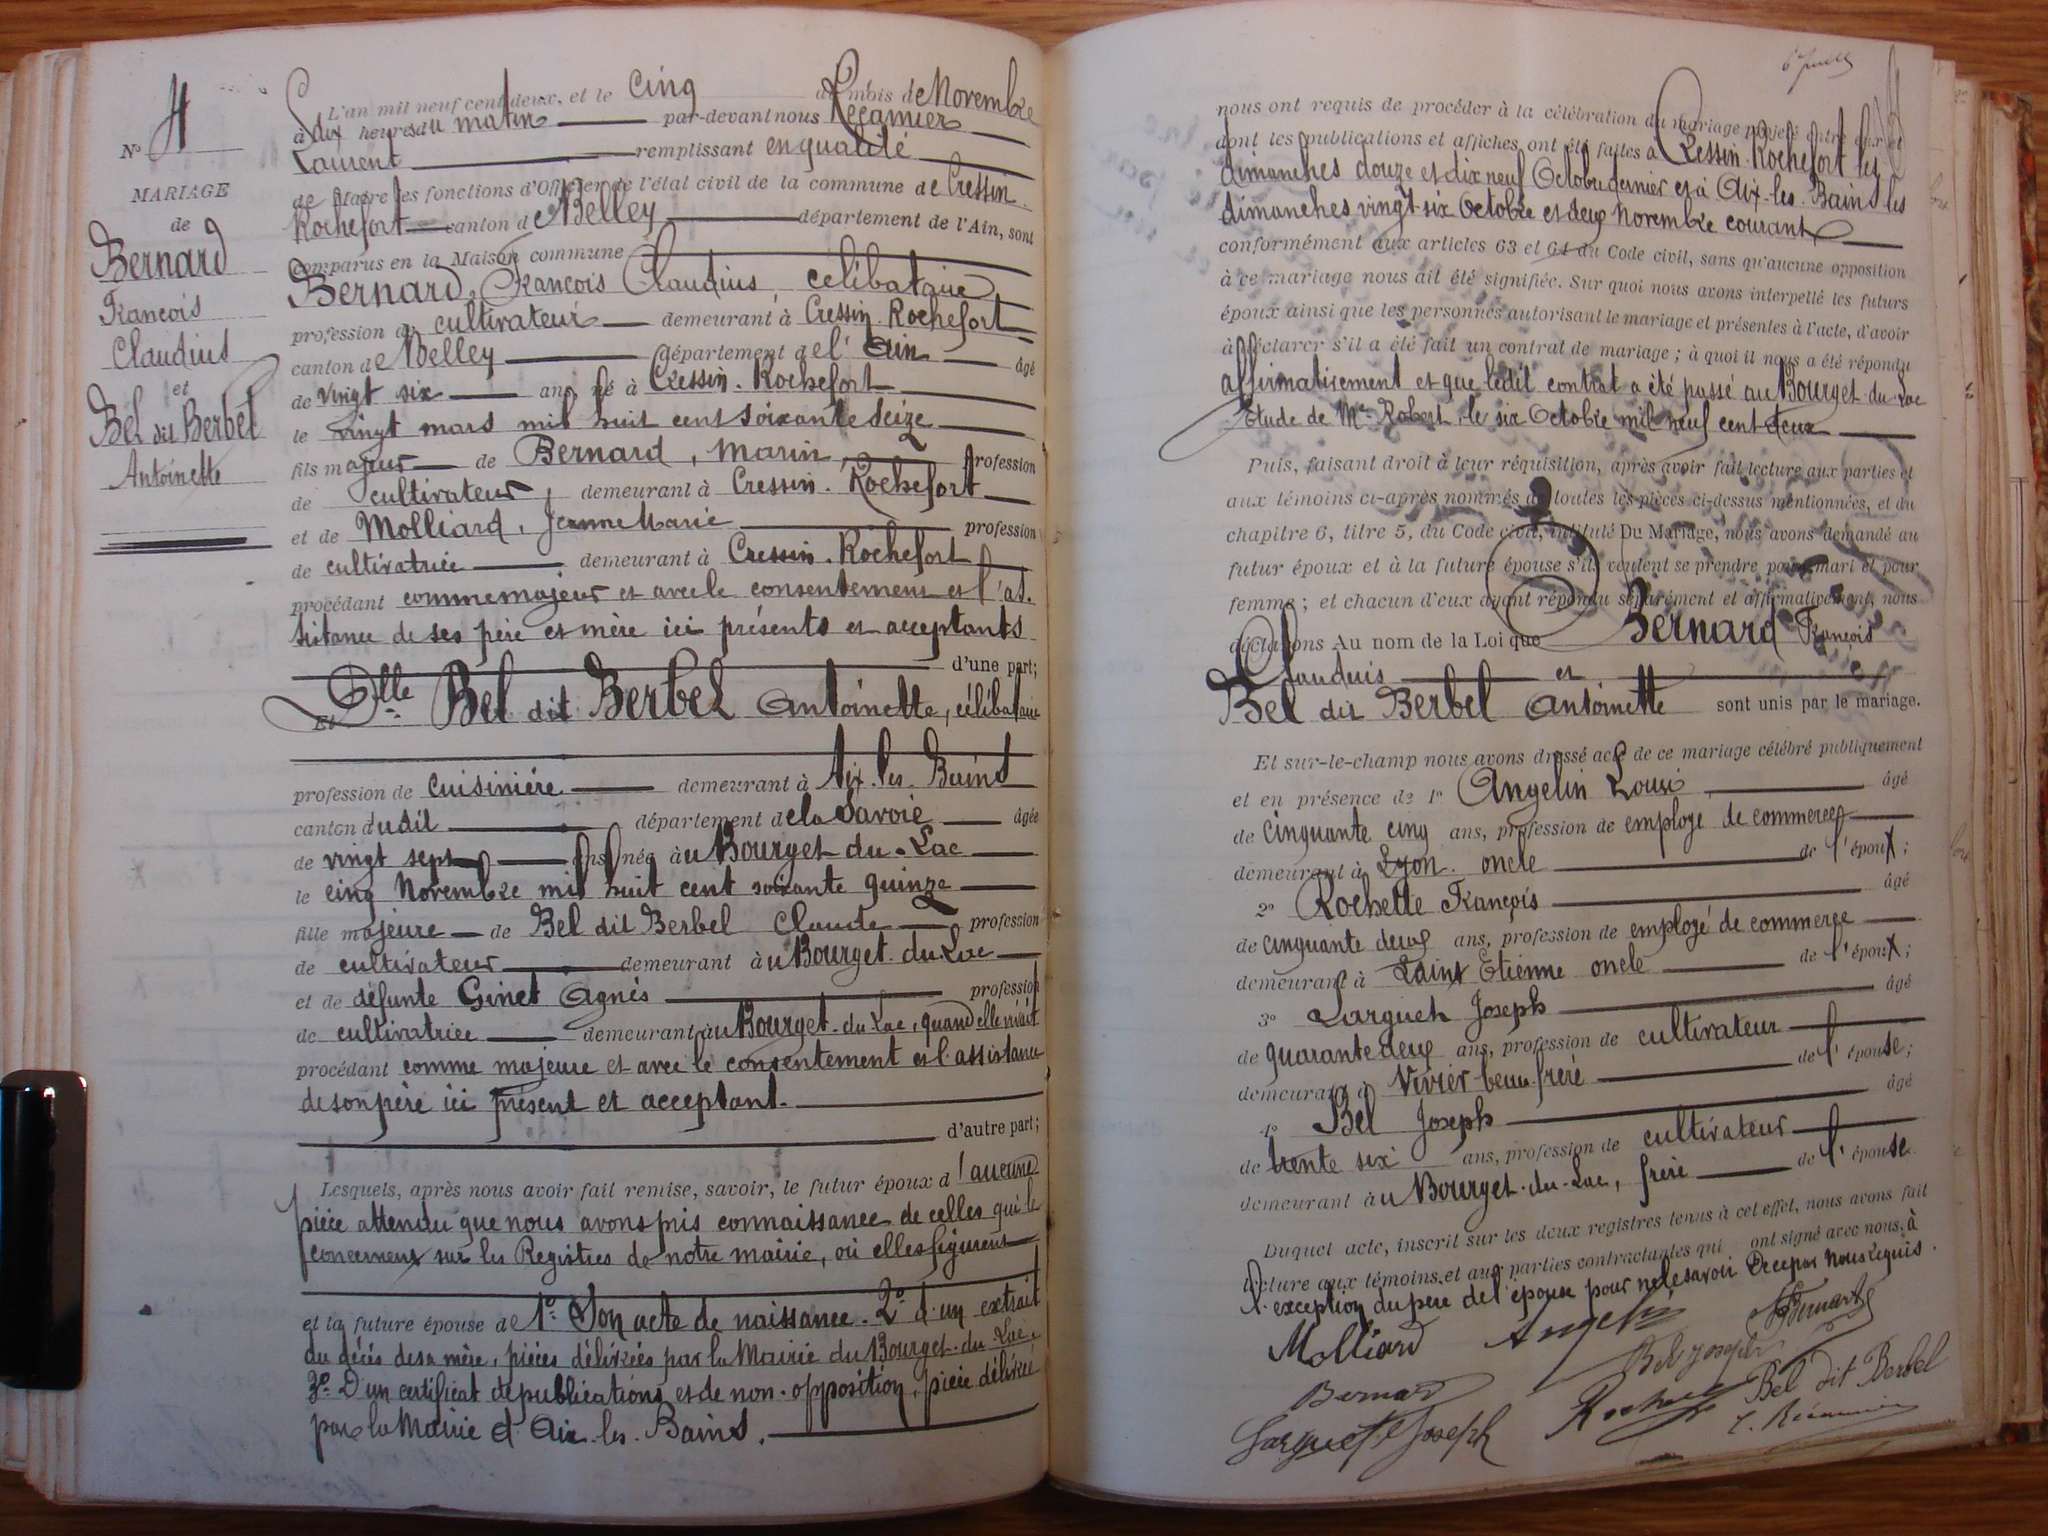 N° 4
MARIAGE
de
Bernard
François
Claudius
et
Bel dit Berbel
Antoinette
L'an mil neuf cent deux, et le cinq du mois de Novembre
à dix heures du matin par-devant nous Récamier
Laurent remplissant en qualité
de Maire les fonctions d'Officier de l'état civil de la commune de Cressin.
Rochefort canton de Belley département de l'Ain, sont
comparus en la Maison commune
Bernard, François Claudius, célibataire
profession de cultivateur demeurant à Cressin. Rochefort
canton de Belley département de l'Ain âgé
de vingt six ans, né à Cressin. Rochefort
le vingt mars mil huit cent soixante seize
fils majeur de Bernard, Marin, profession
de cultivateur, demeurant à Cressin. Rochefort
et de Molliard, Jeanne Marie profession
de cultivatrice demeurant à Cressin. Rochefort
procédant comme majeur et avec le consentement et l'as.
sistance de ses père et mère ici présents et acceptants
d'une part;
Et Dlle Bel dit Berbel Antoinette, célibataire
profession de cuisinière demeurant à Aix. les. Bains
canton dudit département de la Savoie âgée
de vingt sept ans, née au Bourget du. Lac
le cinq Novembre mil huit cent soixante quinze
fille majeure de Bel dit Berbel Claude profession
de cultivateur demeurant au Bourget. du. Lac
et de défunte Ginet Agnès profession
de cultivatrice demeurant au Bourget. du Lac, quand elle vivait
procédant comme majeure et avec le consentement et l'assistance
de son père ici présent et acceptant.
d'autre part;
Lesquels, après nous avoir fait remise, savoir, le futur époux d'aucune
pièce attendu que nous avons pris connaissance de celles qui le
concernent sur les Registres de notre mairie, où elles figurent
et la future épouse de 1° Son acte de naissance. 2° d'un extrait
du décès de sa mère, pièces délivrées par la Mairie du Bourget. du Lac.
3° D'un certificat de publications et de non. opposition, pièce délivrée
par la Mairie d'Aix. les. Bains.
nous ont requis de procéder à la célébration du mariage projeté entre eux et
dont les publications et affiches ont été faites à Cressin. Rochefort les
dimanches douze et dix neuf Octobre dernier et à Aix. les. Bains les
dimanches vingt. six Octobre et deux Novembre courant
conformément aux articles 63 et 64 du Code civil, sans qu'aucune opposition
à ce mariage nous ait été signifiée. Sur quoi nous avons interpellé les futurs
époux ainsi que les personnes autorisant le mariage et présentes à l'acte, d'avoir
à déclarer s'il a été fait un contrat de mariage; à quoi il nous a été répondu
affirmativement et que ledit contrat a été passé au Bourget. du. Lac
Etude de Me Robert, le six Octobre mil neuf cent deux
Puis, faisant droit à leur réquisition, après avoir fait lecture aux parties et
aux témoins ci-après nommés de toutes les pièces ci-dessus mentionnées, et du
chapitre 6, titre 5, du Code civil, intitulé Du Mariage, nous avons demandé au
futur époux et à la future épouse s'ils veulent se prendre pour mari et pour
femme; et chacun d'eux ayant répondu séparément et affirmativement, nous
déclarons Au nom de la Loi que Bernard François
Claudius et
Bel dit Berbel Antoinette sont unis par le mariage.
Et sur-le-champ nous avons dressé acte de ce mariage célébré publiquement
et en présence de 1° Angelin Louis âgé
de cinquante cinq ans, profession de employé de commerce
demeurant à Lyon. oncle de l'époux;
2° Rochette François âgé
de cinquante deux ans, profession de employé de commerce
demeurant à Saint Etienne oncle de l'époux;
3° Larguet Joseph âgé
de quarante deux ans, profession de cultivateur
demeurant à Vivier. beau. frère de l'épouse;
4° Bel Joseph âgé
de trente six ans, profession de cultivateur
demeurant au Bourget. du. Lac, frère de l'épouse
Duquel acte, inscrit sur les deux registres tenus à cet effet, nous avons fait
lecture aux témoins et aux parties contractantes qui ont signé avec nous, à
l'exception du père de l'épouse pour ne le savoir De ce par Nous requis.
Molliard Angelin Bernard
Bel joseph
Bernard Rochette Bel dit Berbel
Larguet Joseph L. Récamier